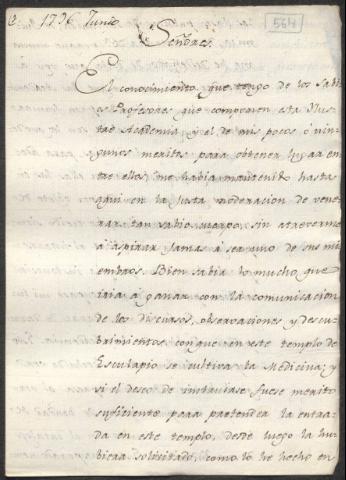 1796 Junio
564
Señores
El conocimiento que tengo de los Sabi-
os Profesores que componen esta Ilus-
tre Academia y el de mis pocos ó nin-
gunos meritos para obtener lugar en-
tre ellos, me había mantenido hasta
aqui en la justa moderacion de vene-
rar tan sabio cuerpo, sin atreverme
a aspirar jamas á ser uno de sus mi-
embros. Bien sabia lo mucho, que
iria á ganar con la comunicacion
de los discursos, observaciones, y descu-
brimientos con que en este templo de
Esculapio se cultiva la Medicina; y
si el deseo de instruirse fuese merito
suficiente para pretender la entra-
da en este templo, desde luego la hu-
biera solicitado, como lo he hecho en